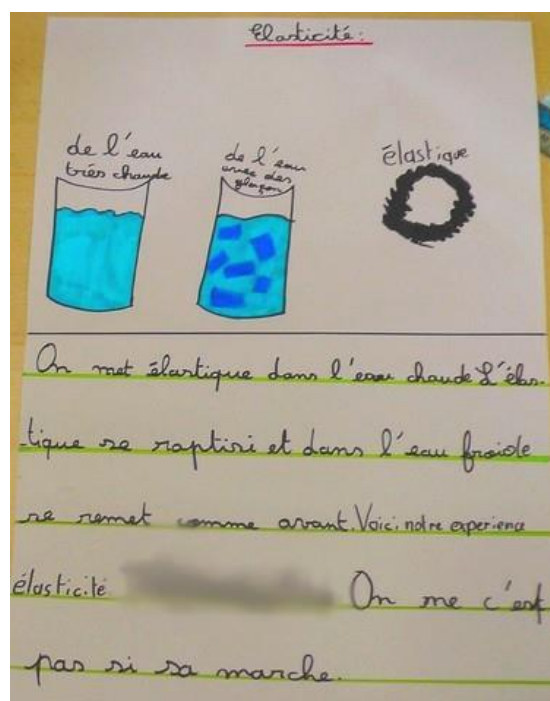 Elasticité:
de l'eau
très chaude
de l'eau
avec des
glaçon
élastique
On met élastique dans l'eau chaude L'élas-
tique se raptisi et dans l'eau froide
se remet comme avant. Voici notre experience
élasticité. On me c'est
pas si sa marche.